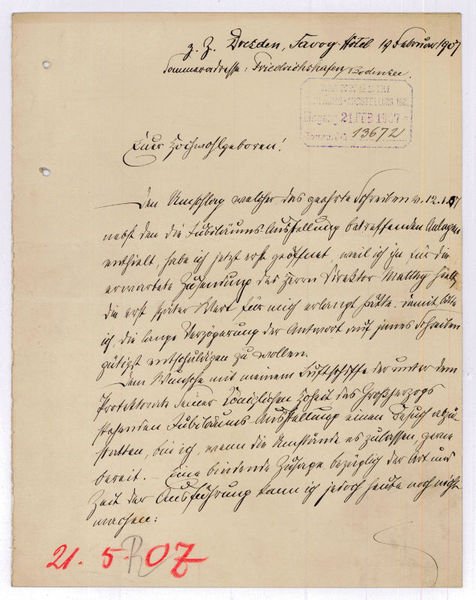 z. Z. Dresden, Savoy-Hôtel 19 Februar 1907
Sommeradresse: Friedrichshafen Bodensee.
21 FEB 1907
13672
Euer Hochwohlgeboren!
Den Umschlag welcher das geehrte Schreiben v. 12.
nebst den die Jubiläums Ausstellung betreffenden Anlagen
enthielt habe ich jetzt erst geöffnet, weil ich ihn für die
erwartete Zusendung des Herrn Direktor hielt,
die erst später Wert für mich erlangt hätte. Damit bitte
ich, die lange Verzögerung der Antwort auf jenes Schreiben
gütigst entschuldigen zu wollen.
Dem Wunsche mit meinem Luftschiffe der unter dem
Protektorate Seiner Königlichen Hoheit des Großherzogs
stehenden Jubiläums Ausstellung einen Besuch abzu-
statten, bin ich, wenn die Umstände es zulassen, gerne
bereit. Eine bindende Zusage bezüglich der Art und
Zeit der Ausführung kann ich jedoch heute noch nicht
machen:
21. 5. R 07